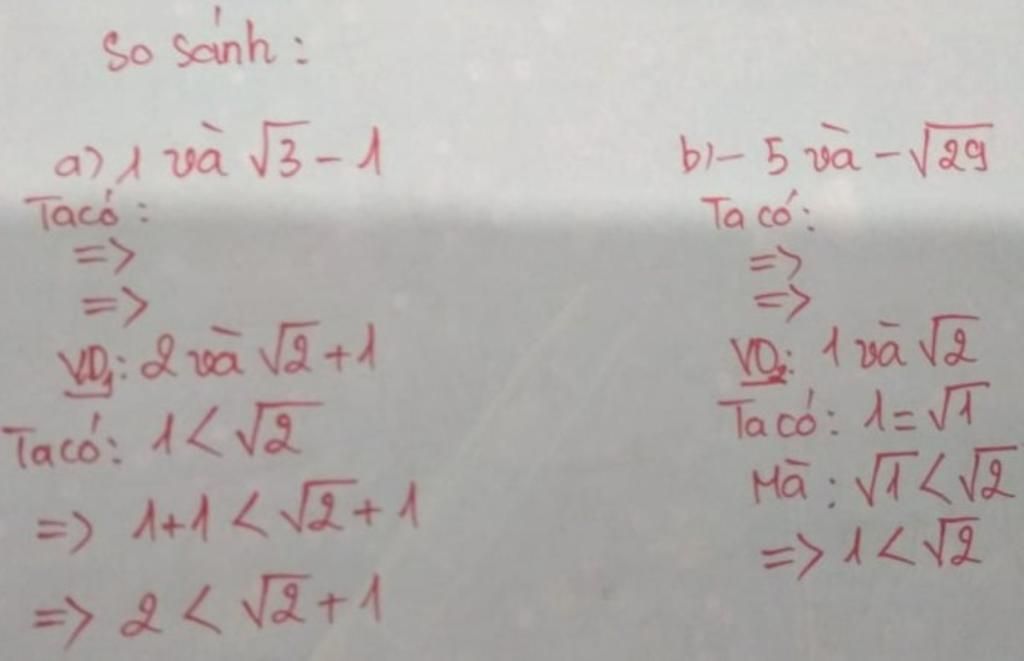 So sánh:
a) 1 và √3 - 1
Ta có:
=>
=>
VD₁: 2 và √2 + 1
Ta có: 1 < √2
=> 1+1 < √2 + 1
=> 2 < √2 + 1
b) - 5 và - √29
Ta có:
=>
=>
VD₂: 1 và √2
Ta có: 1 = √1
Mà: √1 < √2
=> 1 < √2